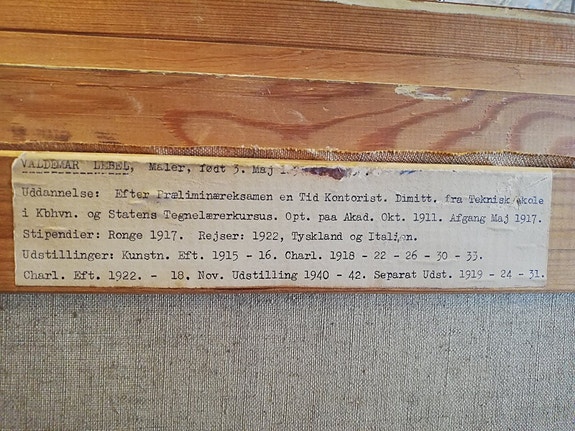 VALDEMAR LEBEL, Maler, født 3. Maj
Uddannelse: Efter Præliminæreksamen en Tid Kontorist. Dimitt. fra Teknisk Skole
i Kbhvn. og Statens Tegnelærerkursus. Opt. paa Akad. Okt. 1911. Afgang Maj 1917.
Stipendier: Ronge 1917. Rejser: 1922, Tyskland og Italien.
Udstillinger: Kunstn. Eft. 1915 - 16. Charl. 1918 - 22 - 26 - 30 - 33.
Charl. Eft. 1922. - 18. Nov. Udstilling 1940 - 42. Separat Udst. 1919 - 24 - 31.